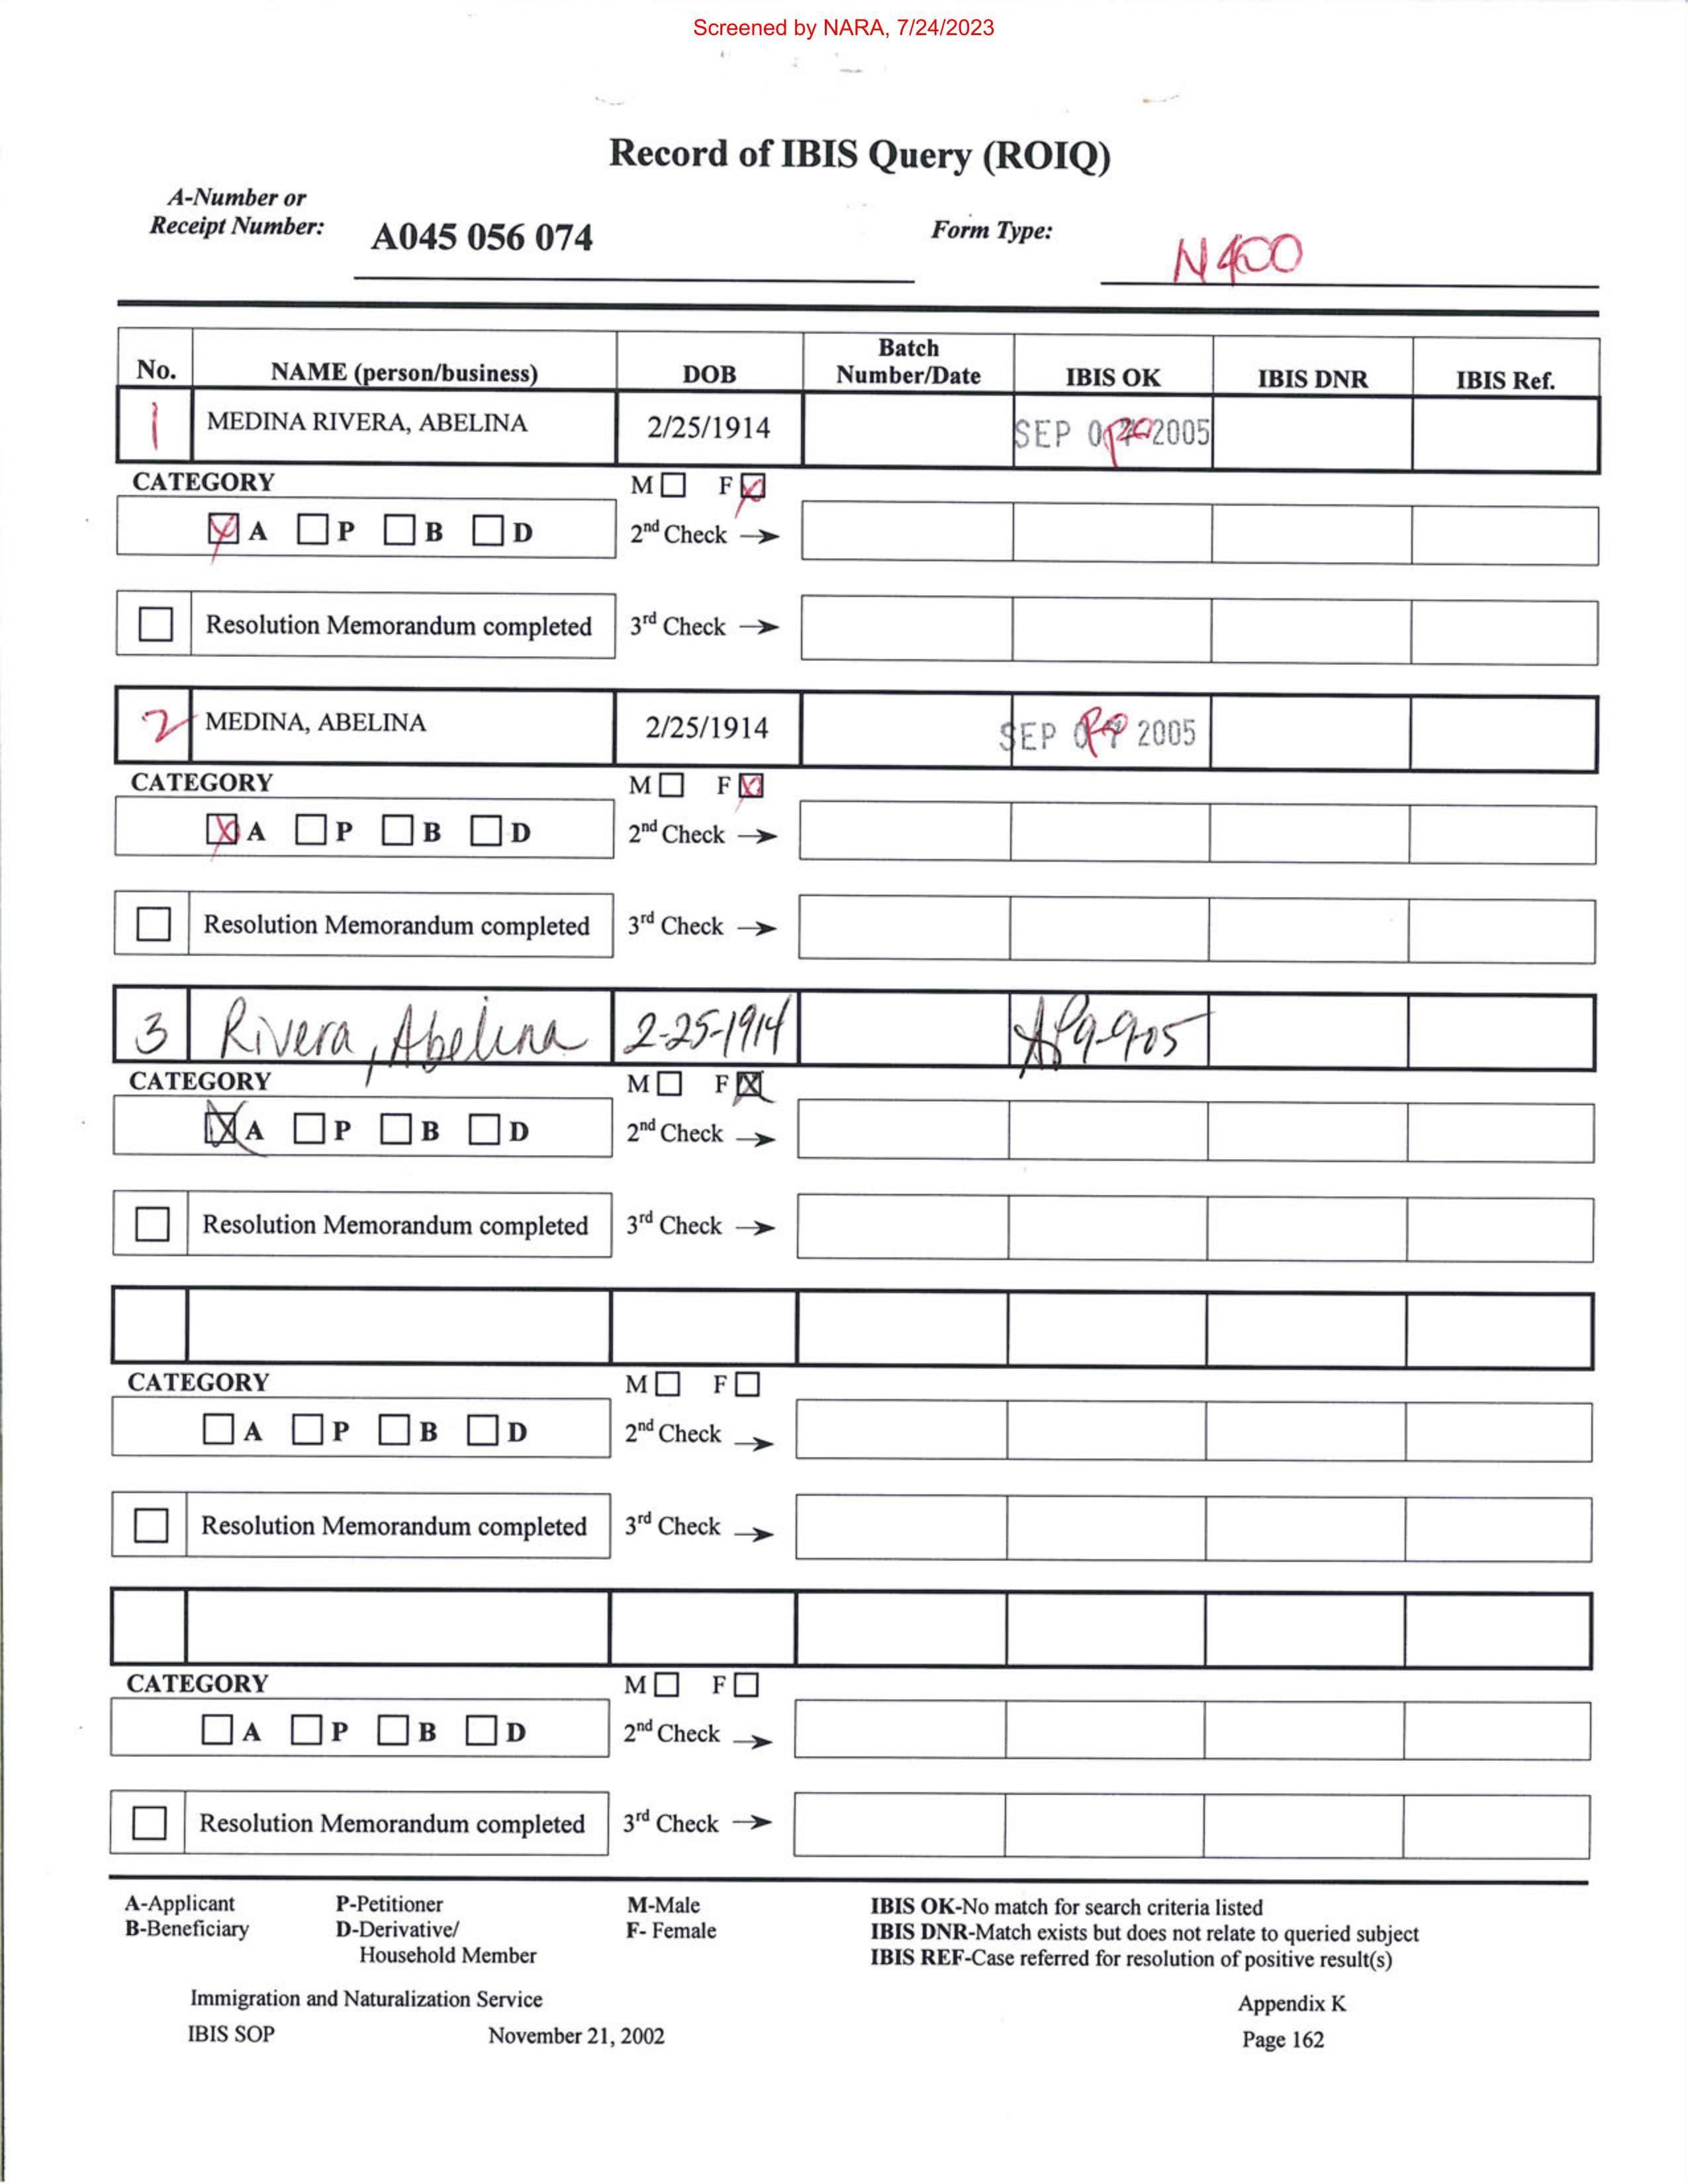 Screened by NARA, 7/24/2023
Record of IBIS Query (ROIQ)
A-Number or
Receipt Number: A045 056 074 Form Type: N400
No. NAME (person/business) DOB Batch Number/Date IBIS OK IBIS DNR IBIS Ref.
1 MEDINA RIVERA, ABELINA 2/25/1914 SEP 2005
CATEGORY M F
A P B D 2nd Check →
Resolution Memorandum completed 3rd Check →
2 MEDINA, ABELINA 2/25/1914 SEP 2005
CATEGORY M F
A P B D 2nd Check →
Resolution Memorandum completed 3rd Check →
3 Rivera, Abelina 2-25-1914 9-9-05
CATEGORY M F
A P B D 2nd Check →
Resolution Memorandum completed 3rd Check →
CATEGORY M F
A P B D 2nd Check →
Resolution Memorandum completed 3rd Check →
CATEGORY M F
A P B D 2nd Check →
Resolution Memorandum completed 3rd Check →
A-Applicant P-Petitioner M-Male IBIS OK-No match for search criteria listed
B-Beneficiary D-Derivative/ F- Female IBIS DNR-Match exists but does not relate to queried subject
Household Member IBIS REF-Case referred for resolution of positive result(s)
Immigration and Naturalization Service Appendix K
IBIS SOP November 21, 2002 Page 162